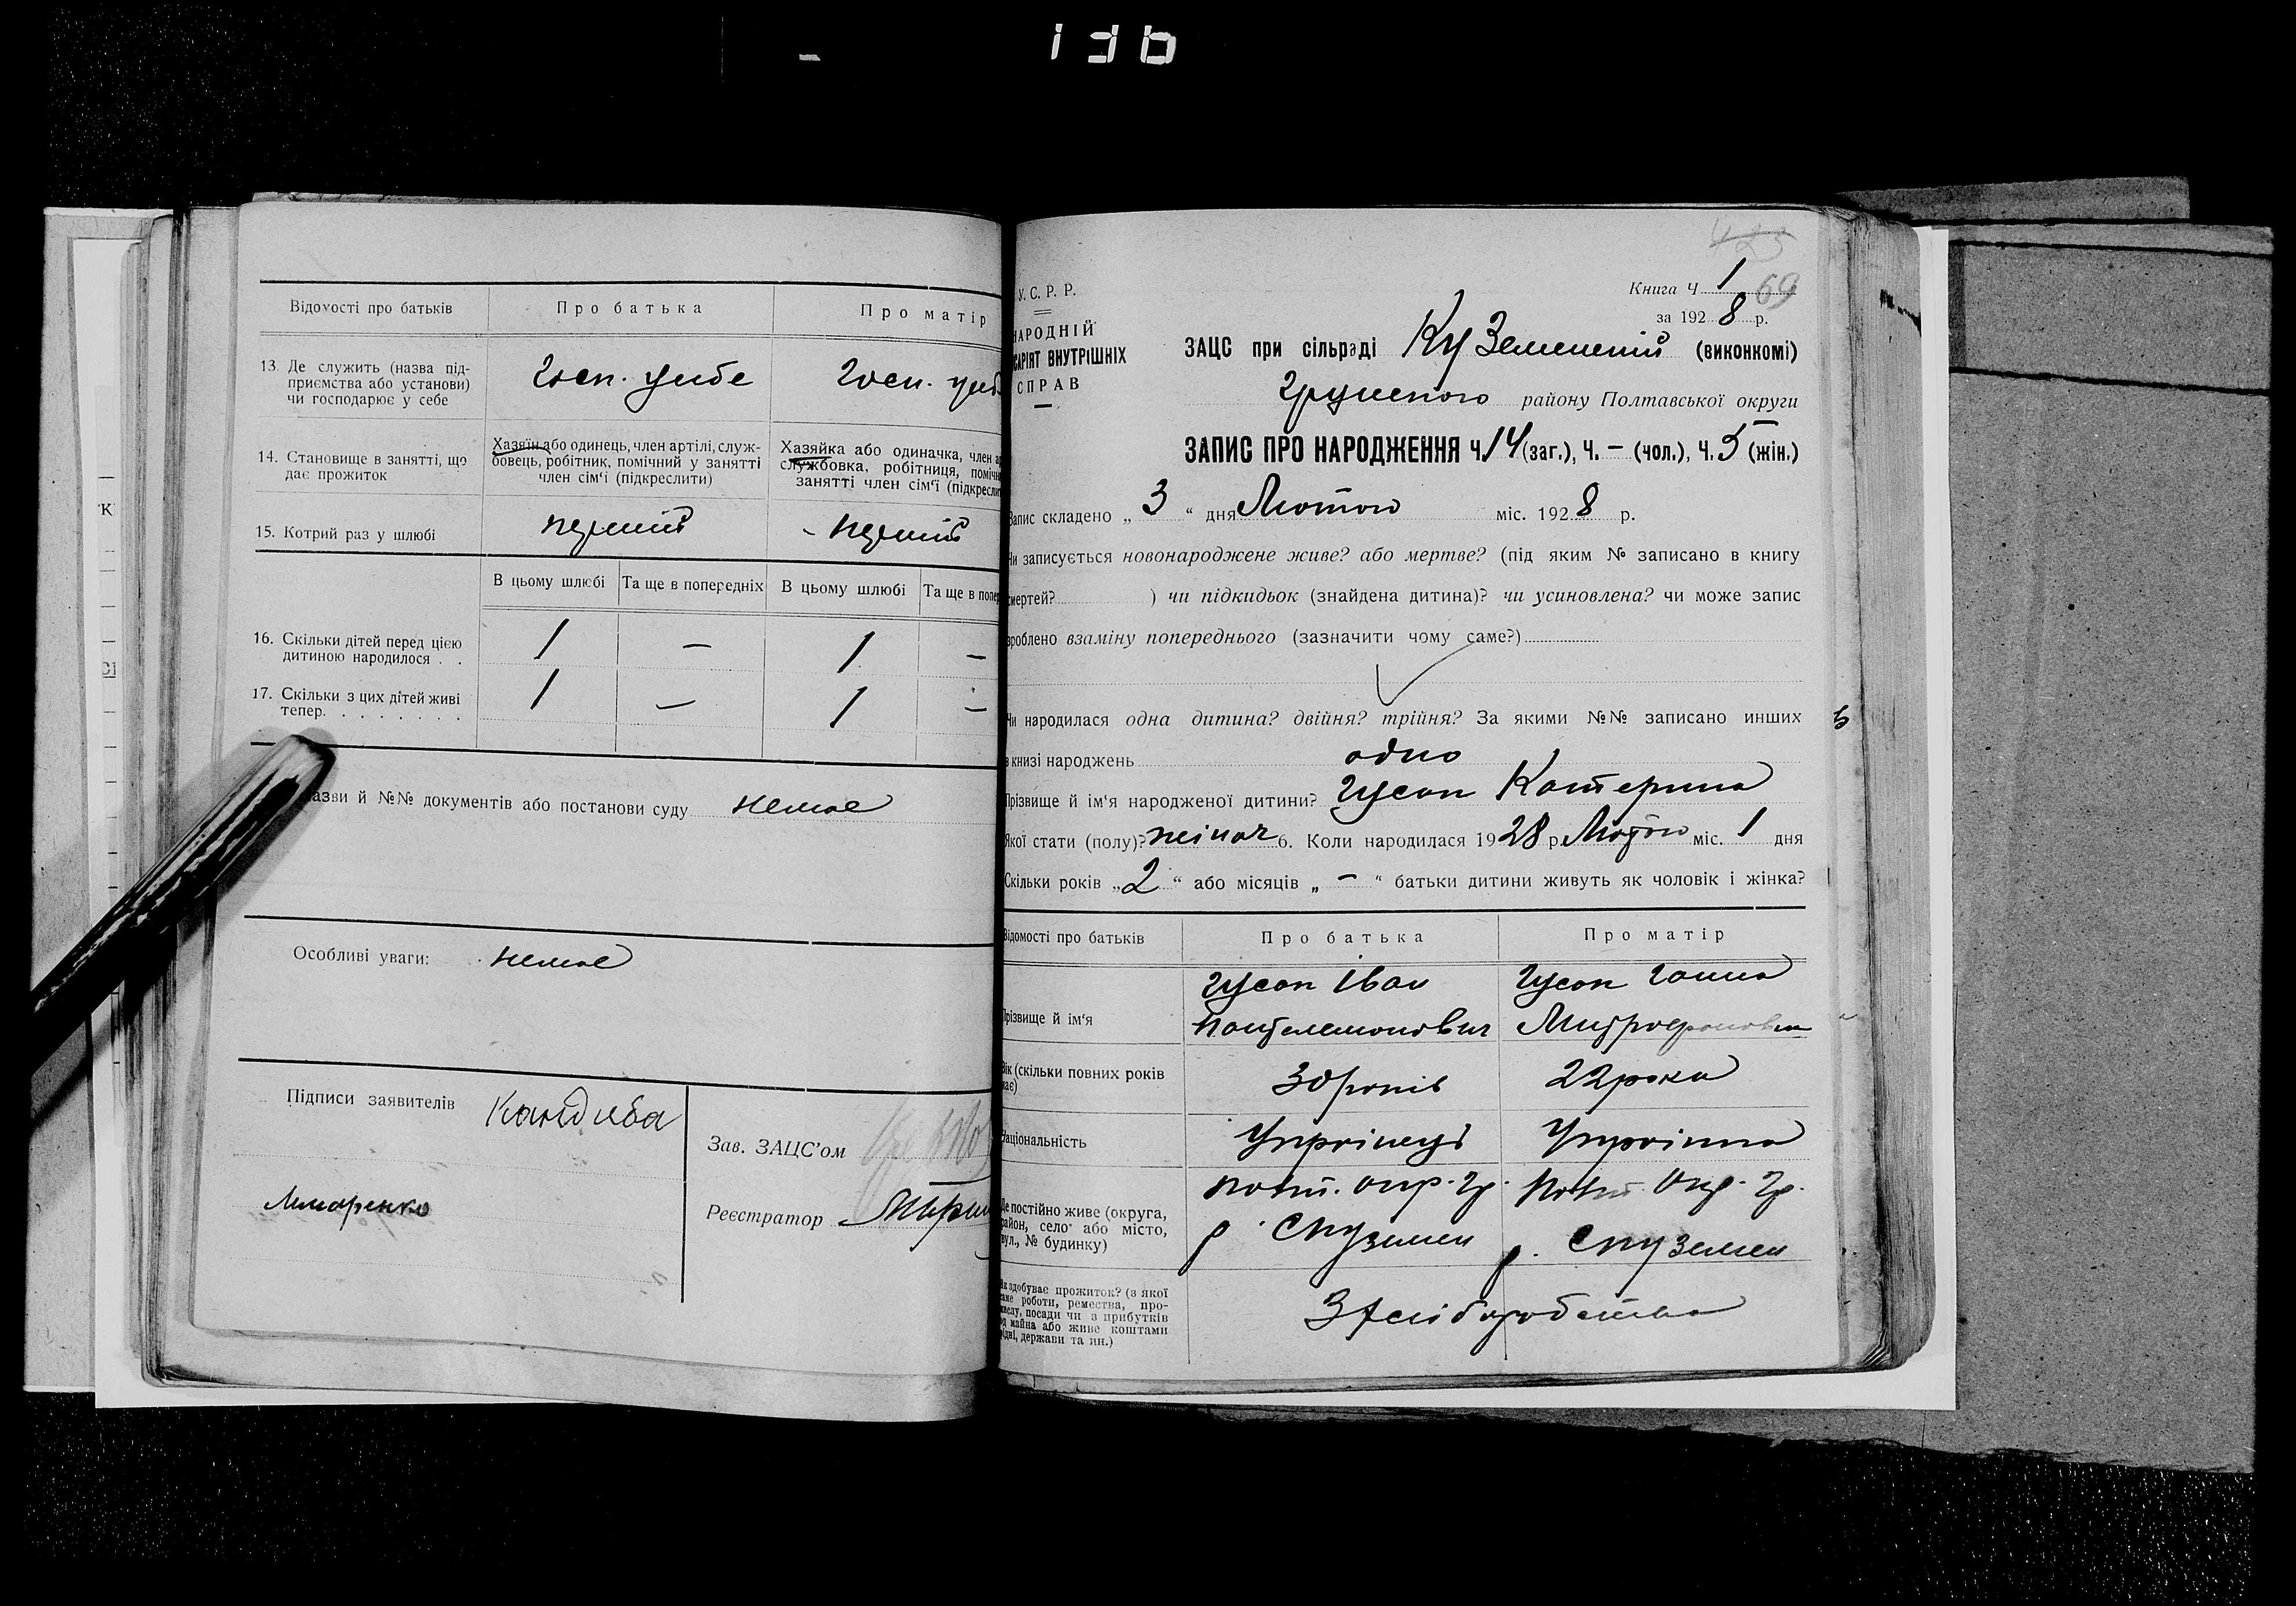 136
Відомості про батьків
Про батька
Про матір
13. Де служить (назва під-
приємства або установи)
чи господарює у себе
Госп. у себе
Госп. у себ
14. Становище в занятті, що
дає прожиток
Хазяїн або одинець, член артілі, служ-
бовець, робітник, помічний у занятті
член сім‘ї (підкреслити)
Хазяйка або одиначка, член ар
службовка, робітниця, помічн
занятті член сім‘ї (підкресли
15. Котрий раз у шлюбі
перший
перший
В цьому шлюбі
Та ще в попередніх
В цьому шлюбі
Та ще в попер
16. Скільки дітей перед цією
дитиною народилося . .
1 — 1 —
17. Скільки з цих дітей живі
тепер. . . . . . . .
1 — 1 —
азви й №№ документів або постанови суду немає
Особливі уваги: немає
Підписи заявителів Кандиба
Лимаренко
Зав. ЗАЦС’ом
Реєстратор
69
У. С. Р. Р.
НАРОДНІЙ
САРІЯТ ВНУТРІШНІХ
СПРАВ
Книга Ч 1
за 192 8 р.
ЗАЦС при сільраді Куземенській (виконкомі)
Грунського району Полтавської округи
ЗАПИС ПРО НАРОДЖЕННЯ Ч. 14 (заг.), Ч. — (чол.), Ч. 5 (жін.)
Запис складено „ 3 “ дня Лютого міс. 192 8 р.
Чи записується новонароджене живе? або мертве? (під яким № записано в книгу
смертей? ) чи підкидьок (знайдена дитина)? чи усиновлена? чи може запис
зроблено взаміну попереднього (зазначити чому саме?)
Чи народилася одна дитина? двійня? трійня? За якими №№ записано инших
в книзі народжень одно
Прізвище й ім‘я народженої дитини? Гусак Катерина
Якої стати (полу)? жіноч 6. Коли народилася 19 28 р. Лютого міс. 1 дня
Скільки років „ 2 “ або місяців „ — “ батьки дитини живуть як чоловік і жінка?
Відомості про батьків
Про батька
Про матір
Прізвище й ім‘я
Гусак Іван
Пантелемонович
Гусак Ганна
Митрофановна
Вік (скільки повних років
має)
30 років
22 роки
Національність
Українець
Українка
Де постійно живе (округа,
район, село або місто,
вул., № будинку)
Полт. окр. Гр.
р. с Куземен
Полт. Окр. Гр.
р. с Куземен
Як здобуває прожиток? (з якої
саме роботи, ремества, про-
мислу, посади чи з прибутків
од майна або живе коштами
рідні, держави та ин.)
З хліборобства